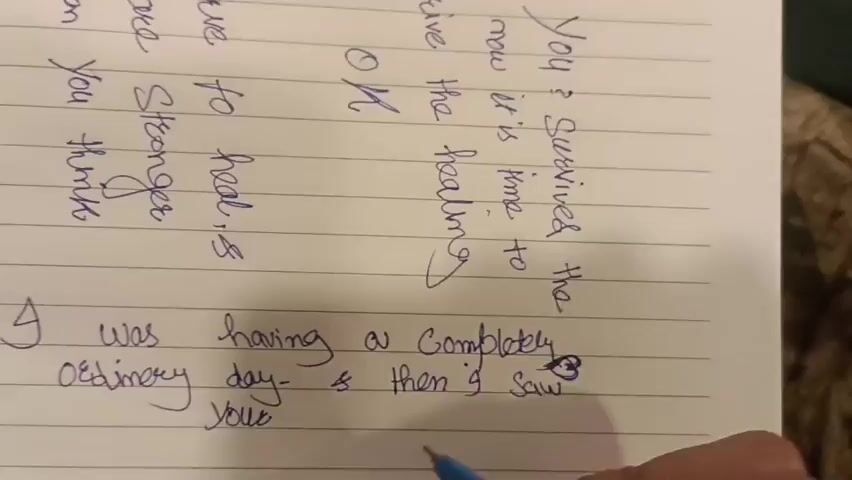 You? Survived the
now it is time to
the healing
OK
to heal, &
Stronger
you think
I was having a completely
ordinery day- & then I saw
your